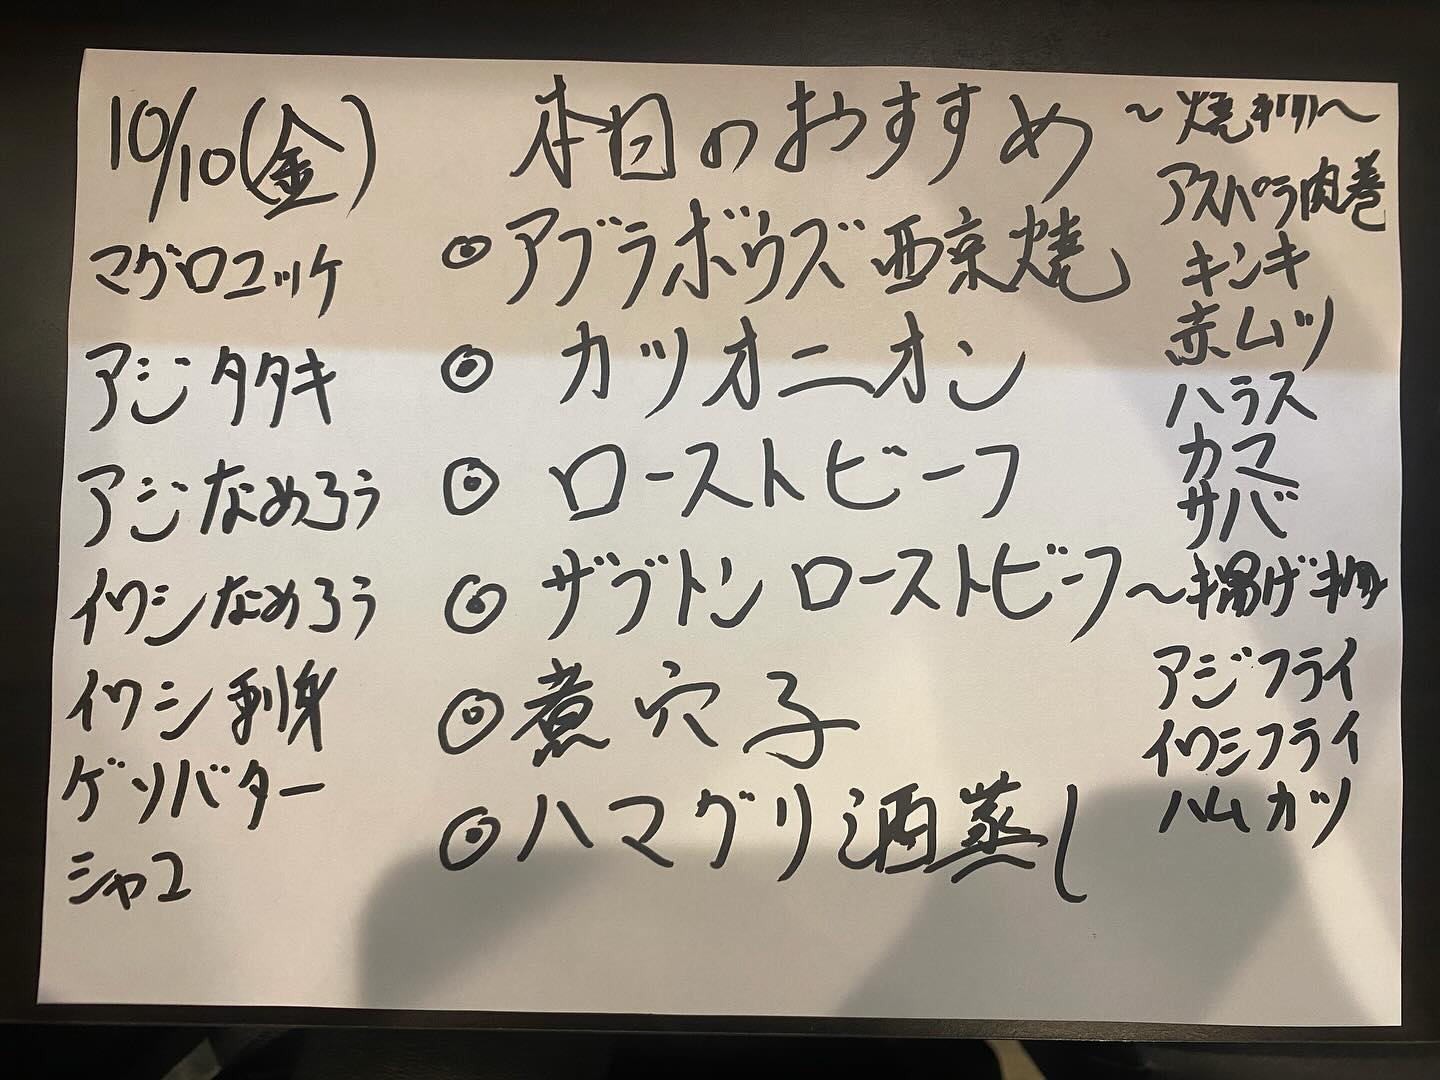 10/10(金)
マグロユッケ
アジタタキ
アジなめろう
イワシなめろう
イワシ刺身
ゲソバター
シャコ
本日のおすすめ
◎アブラボウズ西京焼
◎カツオニオン
◎ローストビーフ
◎ザブトンローストビーフ
◎煮穴子
◎ハマグリ酒蒸し
〜焼き〜
アスパラ肉巻
キンキ
赤ムツ
ハラス
カマ
サバ
〜揚げ物
アジフライ
イワシフライ
ハムカツ